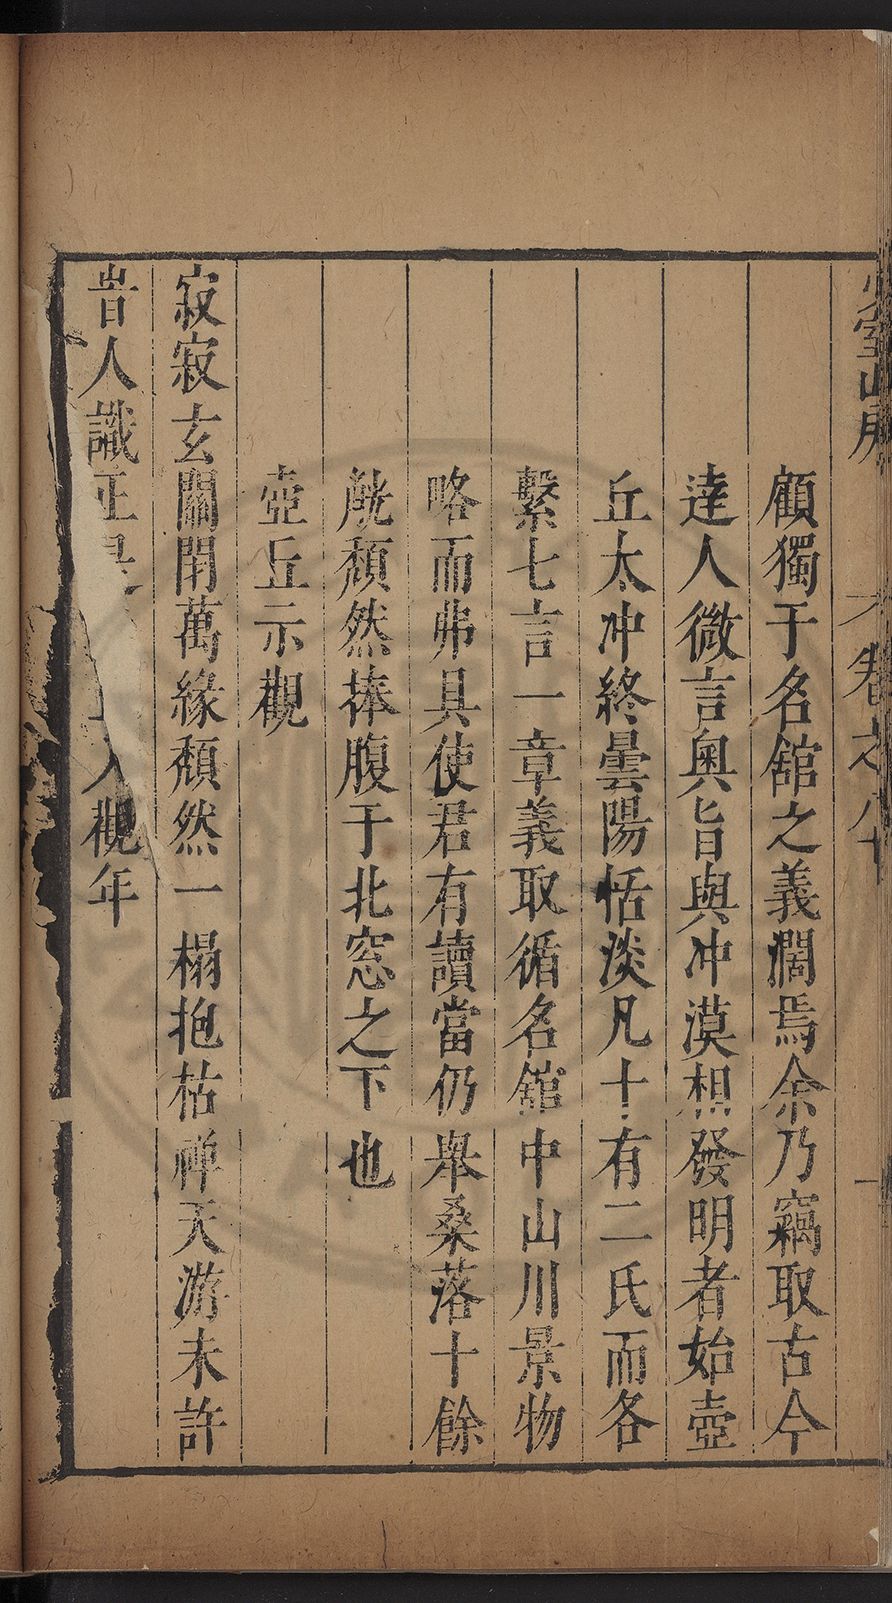 顧獨于名舘之義濶焉余乃竊取古今
達人微言奥旨與冲漠相發明者始壺
丘太冲終曇陽恬淡凡十有二氏而各
繫七言一章義取循名舘中山川景物
略而弗具使君有讀當仍舉桑落十餘
觥頹然捧腹于北窓之下也
壺丘示觀
寂寂玄關閉萬緣頹然一榻抱枯禪天游未許
昔人識正是人觀年